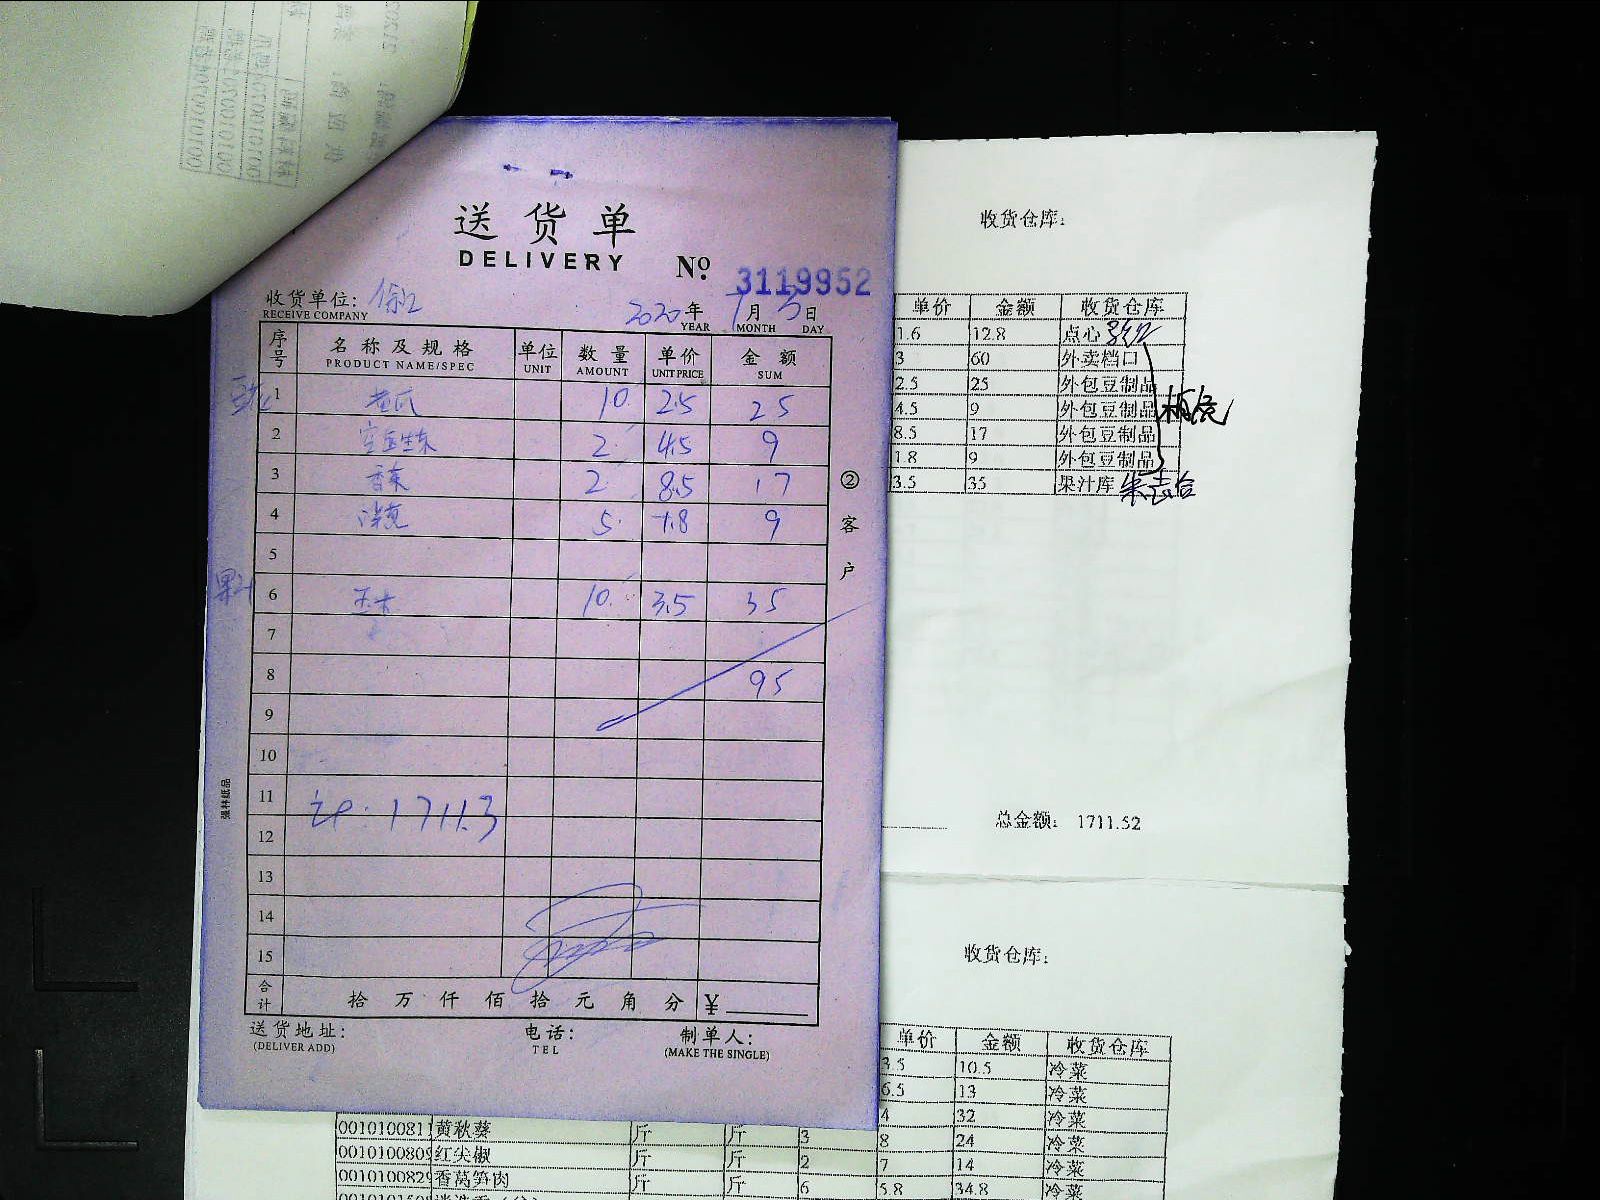 送货单
DELIVERY
№ 3119952
收货单位:
RECEIVE COMPANY
2020年 1月 5日
YEAR MONTH DAY
序号 名称及规格 单位 数量 单价 金额
PRODUCT NAME/SPEC UNIT AMOUNT UNIT PRICE SUM
1 黄瓜 10 2.5 25
2 2 4.5 9
3 香菜 2 8.5 17
4 5 1.8 9
5
6 玉米 10 3.5 35
7
8 95
9
10
11
计: 1711.3
12
13
14
15
合计 拾万仟佰拾元角分 ¥
送货地址: 电话: 制单人:
(DELIVER ADD) TEL (MAKE THE SINGLE)
②客户
强林纸品
收货仓库:
单价 金额 收货仓库
1.6 12.8 点心
3 60 外卖档口
2.5 25 外包豆制品
4.5 9 外包豆制品
8.5 17 外包豆制品
1.8 9 外包豆制品
3.5 35 果汁库
总金额: 1711.52
收货仓库:
单价 金额 收货仓库
3.5 10.5 冷菜
6.5 13 冷菜
4 32 冷菜
0010100811 黄秋葵 斤 斤 3 8 24 冷菜
001010080 红尖椒 斤 斤 2 7 14 冷菜
001010082 香莴笋肉 斤 斤 6 5.8 34.8 冷菜